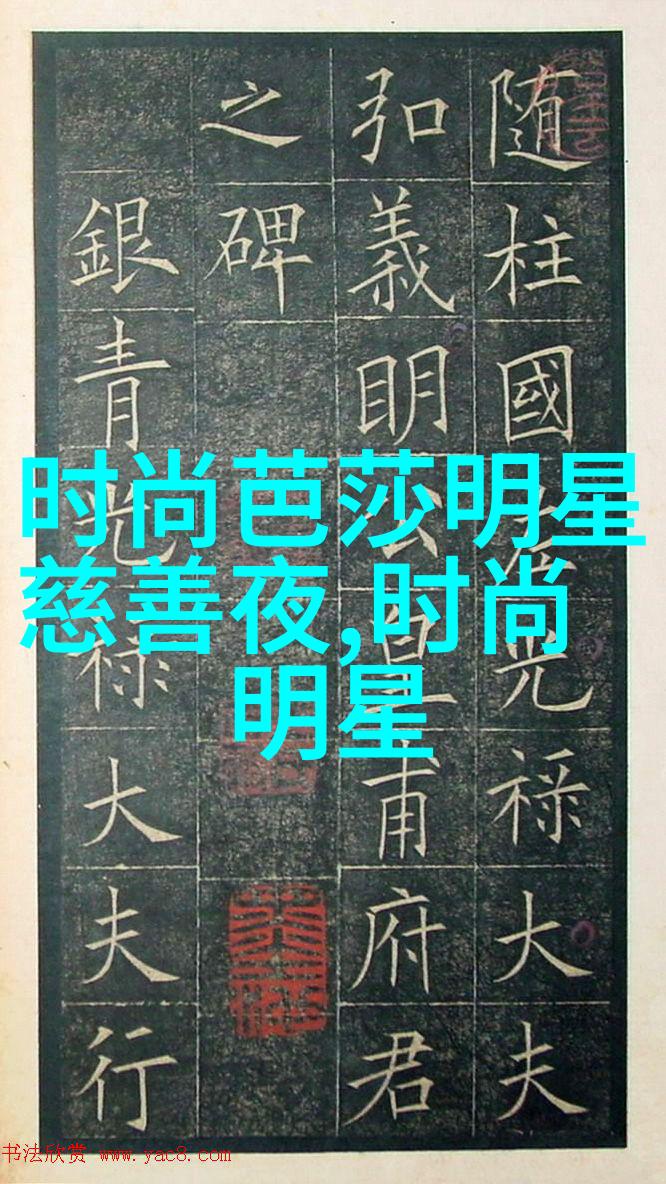 随柱國左光禄大夫
弘義明公皇甫府君
之碑
銀青光禄大夫行
时尚芭莎明星
慈善夜,时尚
明星
书法欣赏 www.yac8.com